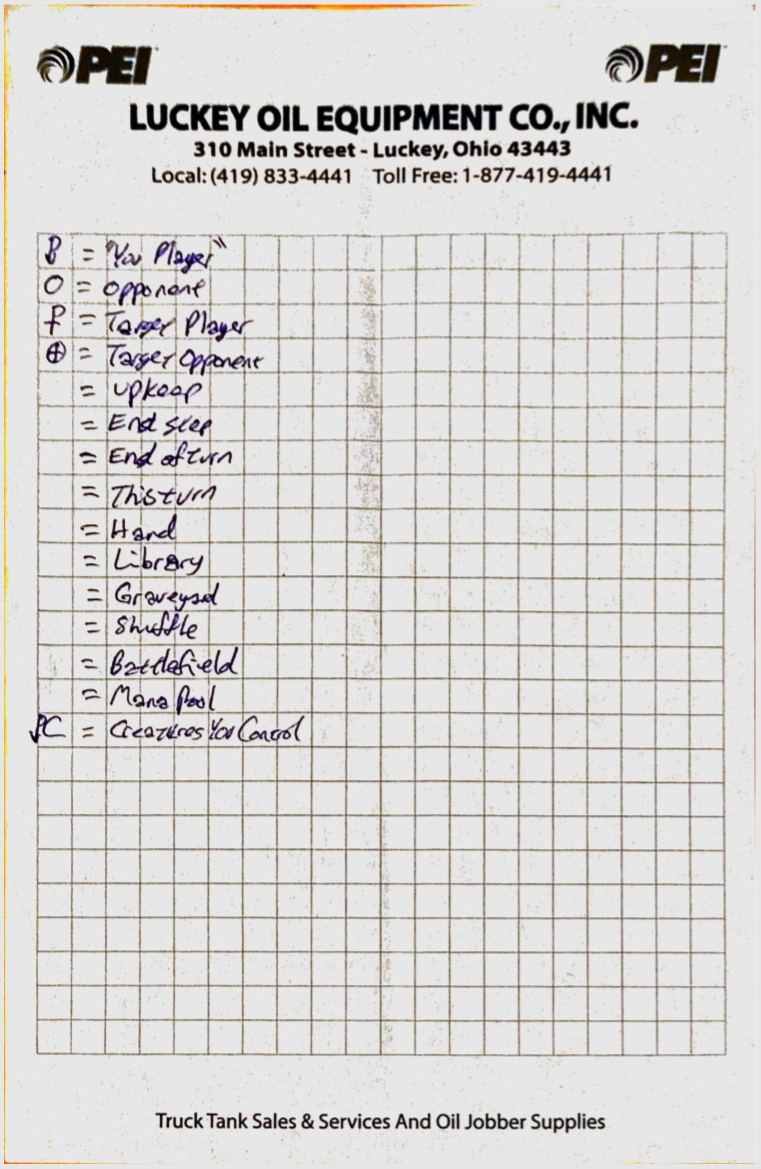 PEI PEI
LUCKEY OIL EQUIPMENT CO., INC.
310 Main Street - Luckey, Ohio 43443
Local: (419) 833-4441 Toll Free: 1-877-419-4441
= "You Player"
O = Opponent
= Target Player
⊕ = Target Opponent
= upkeep
= End step
= End of turn
= This turn
= Hand
= Library
= Graveyad
= Shuffle
= Battlefield
= Mana Pool
C = Creatures You Control
Truck Tank Sales & Services And Oil Jobber Supplies